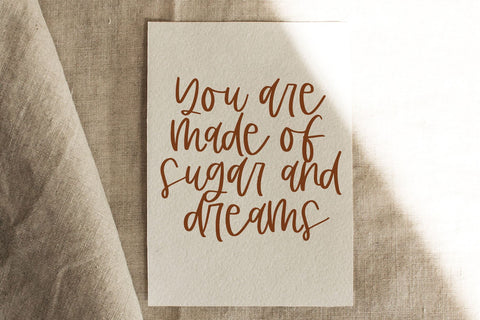 You are
made of
sugar and
dreams